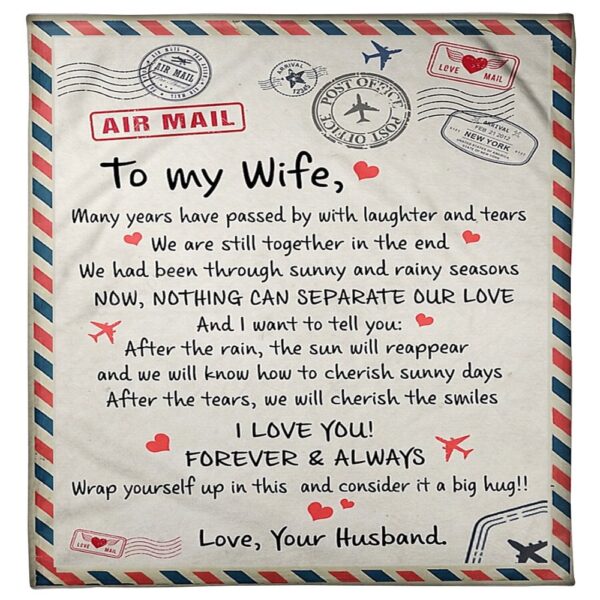 AIR MAIL
AIR MAIL
AIR MAIL
ARRIVAL
12345
POST OFFICE
POST OFFICE
LOVE MAIL
ARRIVAL
FEB 21 2012
NEW YORK
To my Wife,
Many years have passed by with laughter and tears
We are still together in the end
We had been through sunny and rainy seasons
NOW, NOTHING CAN SEPARATE OUR LOVE
And I want to tell you:
After the rain, the sun will reappear
and we will know how to cherish sunny days
After the tears, we will cherish the smiles
I LOVE YOU!
FOREVER & ALWAYS
Wrap yourself up in this and consider it a big hug!!
Love, Your Husband.
LOVE MAIL